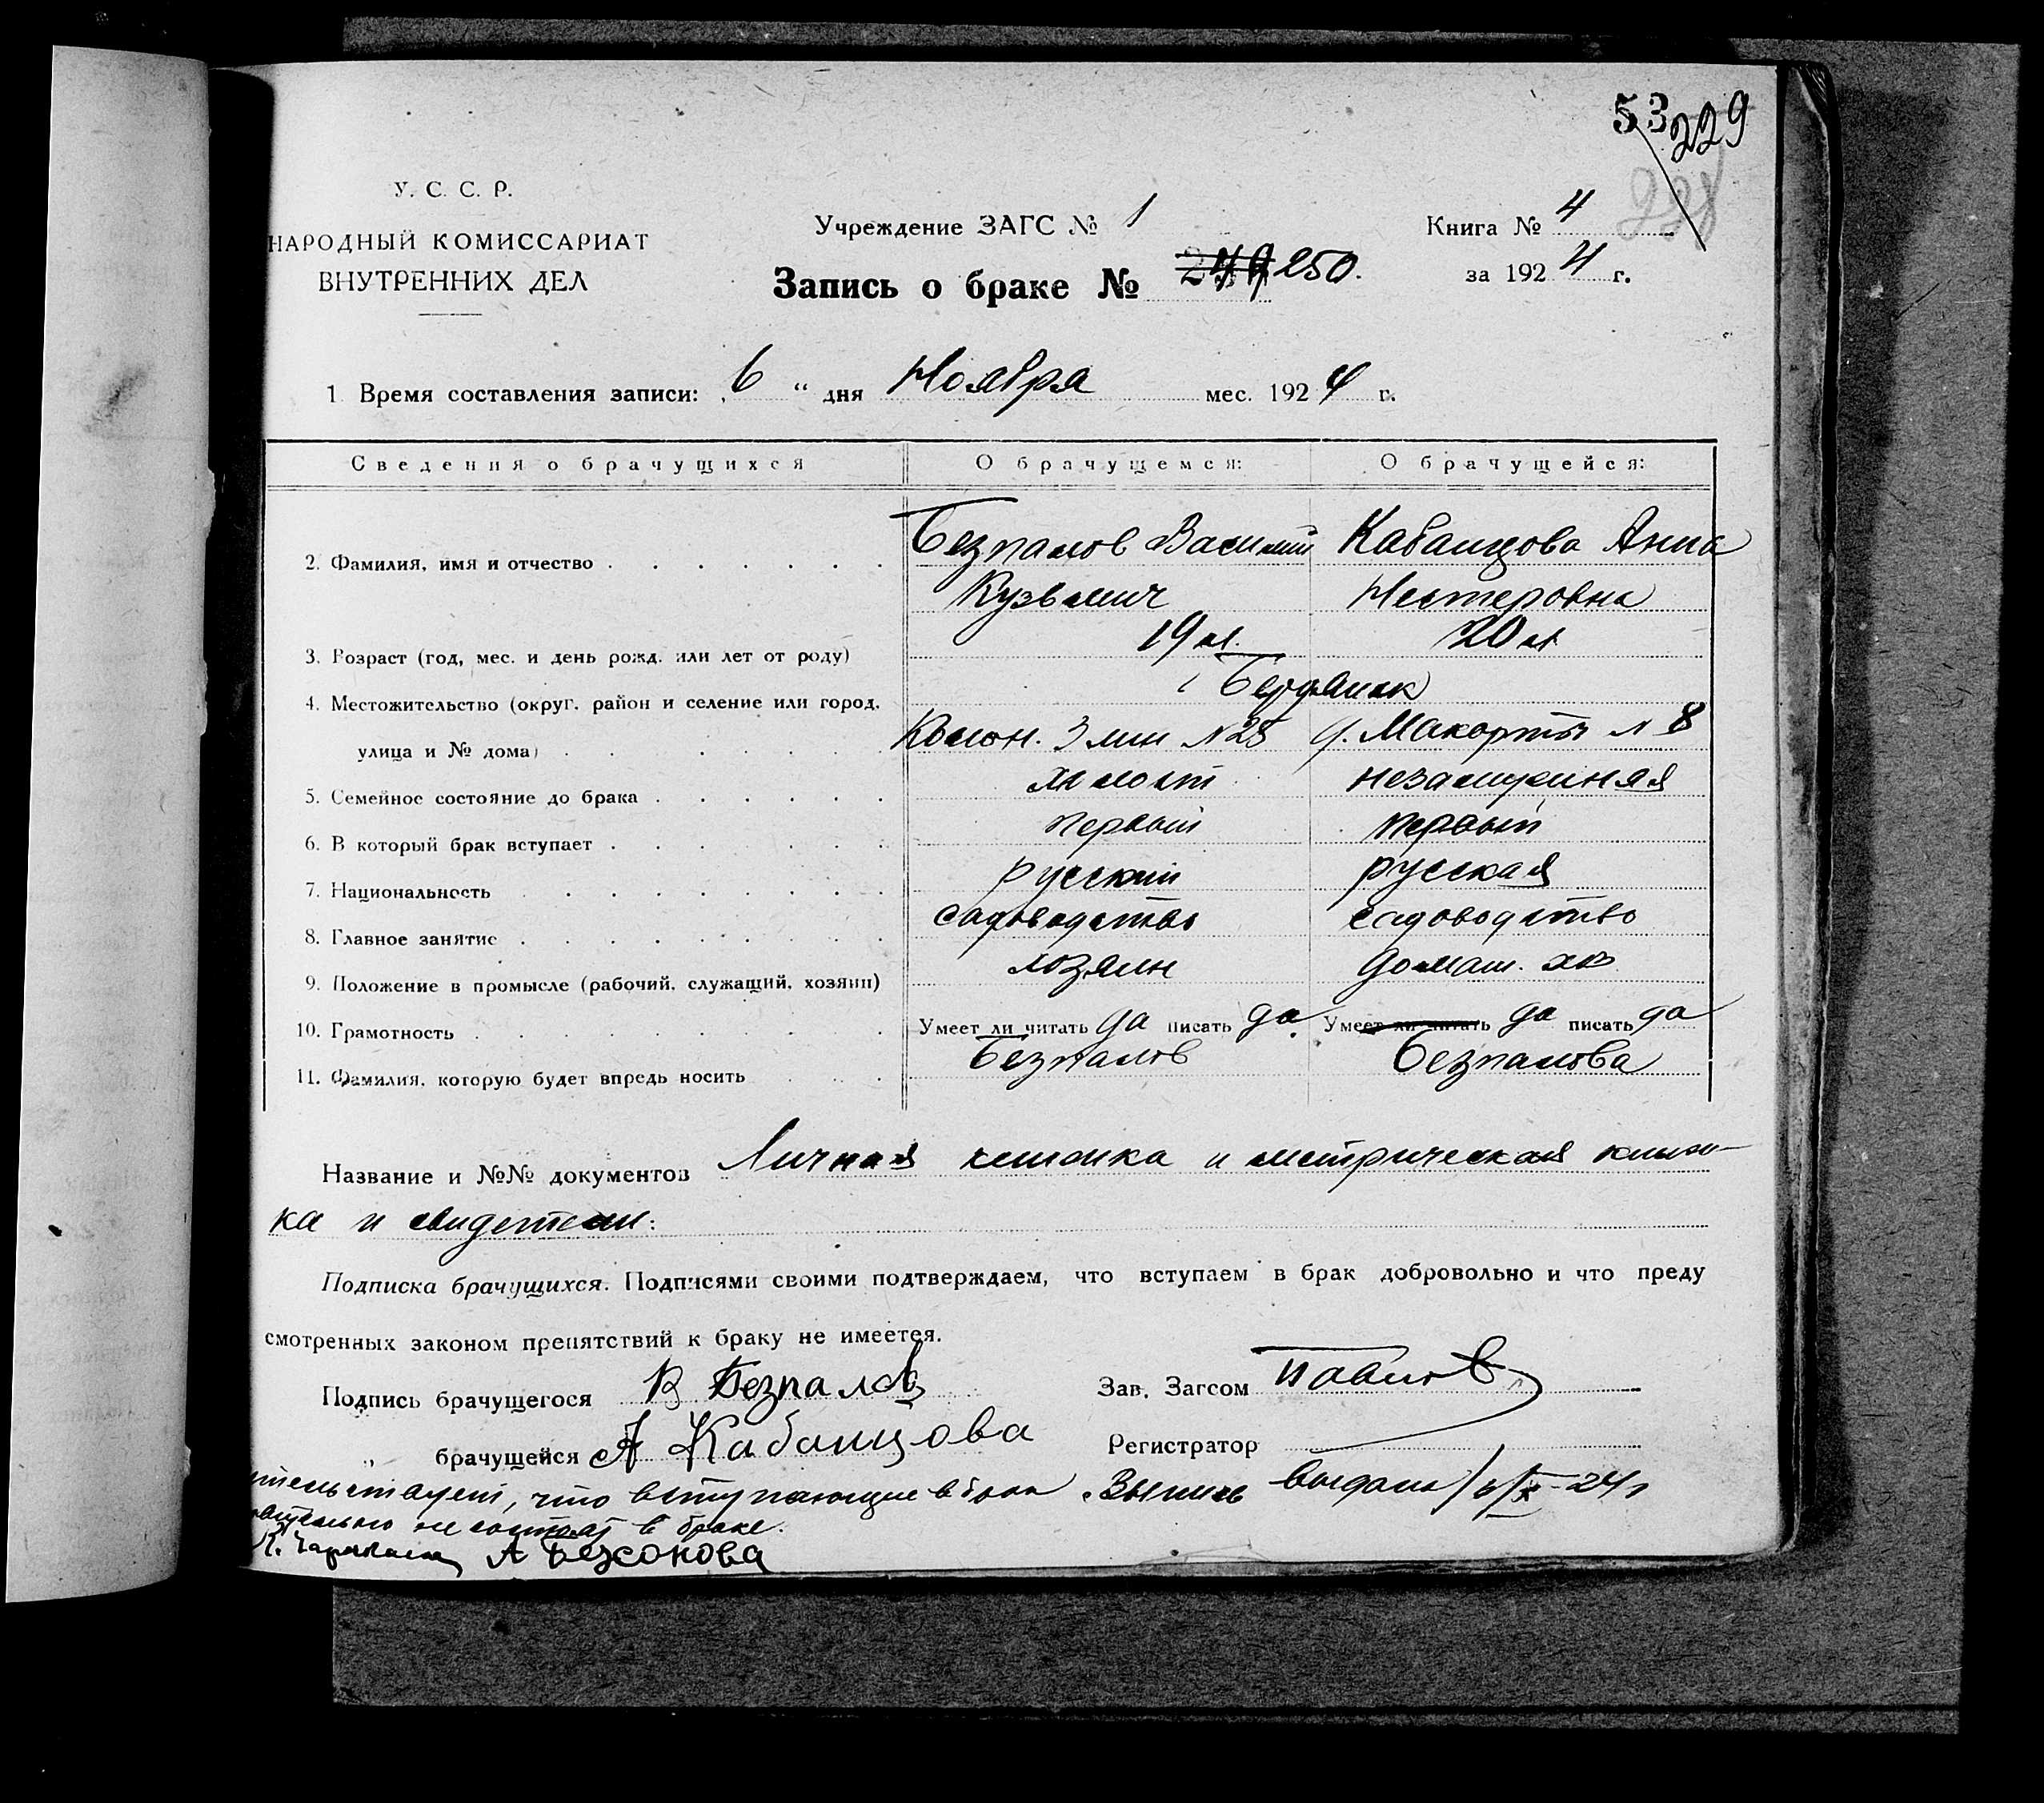 53 229
228
У. С. С. Р.
НАРОДНЫЙ КОМИССАРИАТ
ВНУТРЕННИХ ДЕЛ
Учреждение ЗАГС № 1
Книга № 4
Запись о браке № 249 250.
за 1924 г.
1. Время составления записи: „6 “ дня Ноября мес. 1924 г.
Сведения о брачущихся О брачущемся: О брачущейся:
2. Фамилия, имя и отчество Безпалов Василий Кабанцова Анна
Кузьмич Нестеровна
3. Возраст (год, мес. и день рожд. или лет от роду) 19 л. 20 л.
4. Местожительство (округ, район и селение или город, г Бердянск
улица и № дома) Колон. 3 лин N 25 д. Макорты N 8
5. Семейное состояние до брака холост незамужняя
6. В который брак вступает первый первый
7. Национальность русский русская
8. Главное занятие садоводство садоводство
9. Положение в промысле (рабочий, служащий, хозяин) хозяин домаш. хоз
10. Грамотность Умеет ли читать да писать да Умеет ли читать да писать да
11. Фамилия, которую будет впредь носить Безпалов Безпалова
Название и №№ документов Личная книжка и метрическая книж-
ка и свидетели:
Подписка брачущихся. Подписями своими подтверждаем, что вступаем в брак добровольно и что преду
смотренных законом препятствий к браку не имеется.
Подпись брачущегося В Безпалов Зав. Загсом Павлов
„ брачущейся А Кабанцова Регистратор
что вступающие в брак Выпись выдана 6/XI-24 г
не состоят в браке.
А Безсонова